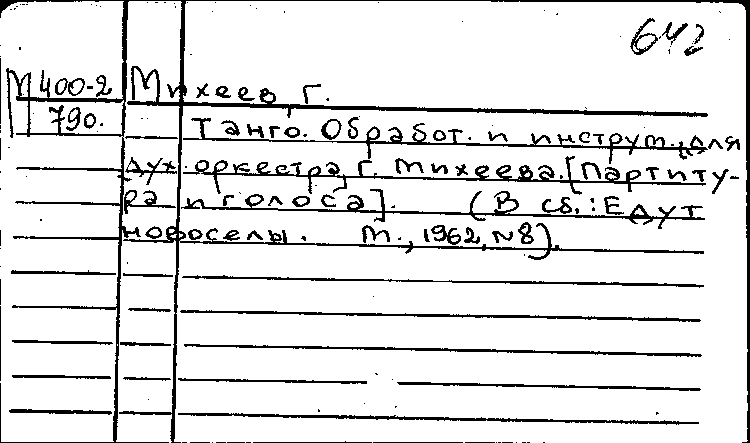 642
М 400-2 Михеев, Г.
790.
Танго. Обработ. и инструм. для
дух. оркестра Г. Михеева. [Партиту-
ра и голоса]. (В сб.: Едут
новоселы. М., 1962, № 8).